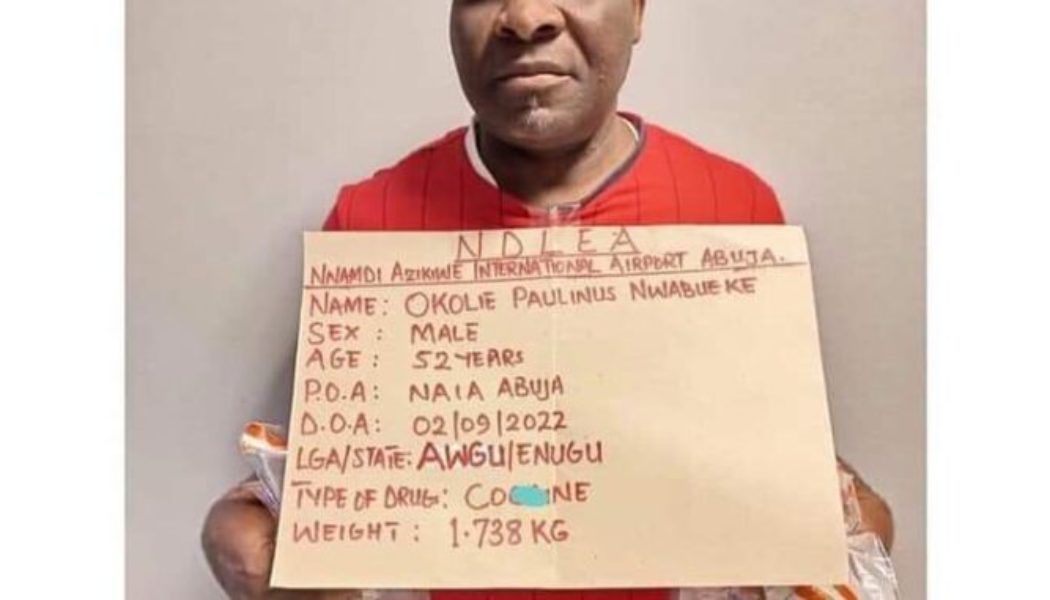 NDLEA
NNAMDI AZIKIWE INTERNATIONAL AIRPORT ABUJA.
NAME: OKOLIE PAULINUS NWABUEKE
SEX : MALE
AGE : 52 YEARS
P.O.A: NAIA ABUJA
D.O.A: 02/09/2022
LGA/STATE: AWGU/ENUGU
TYPE OF DRUG:
WEIGHT : 1.738 KG